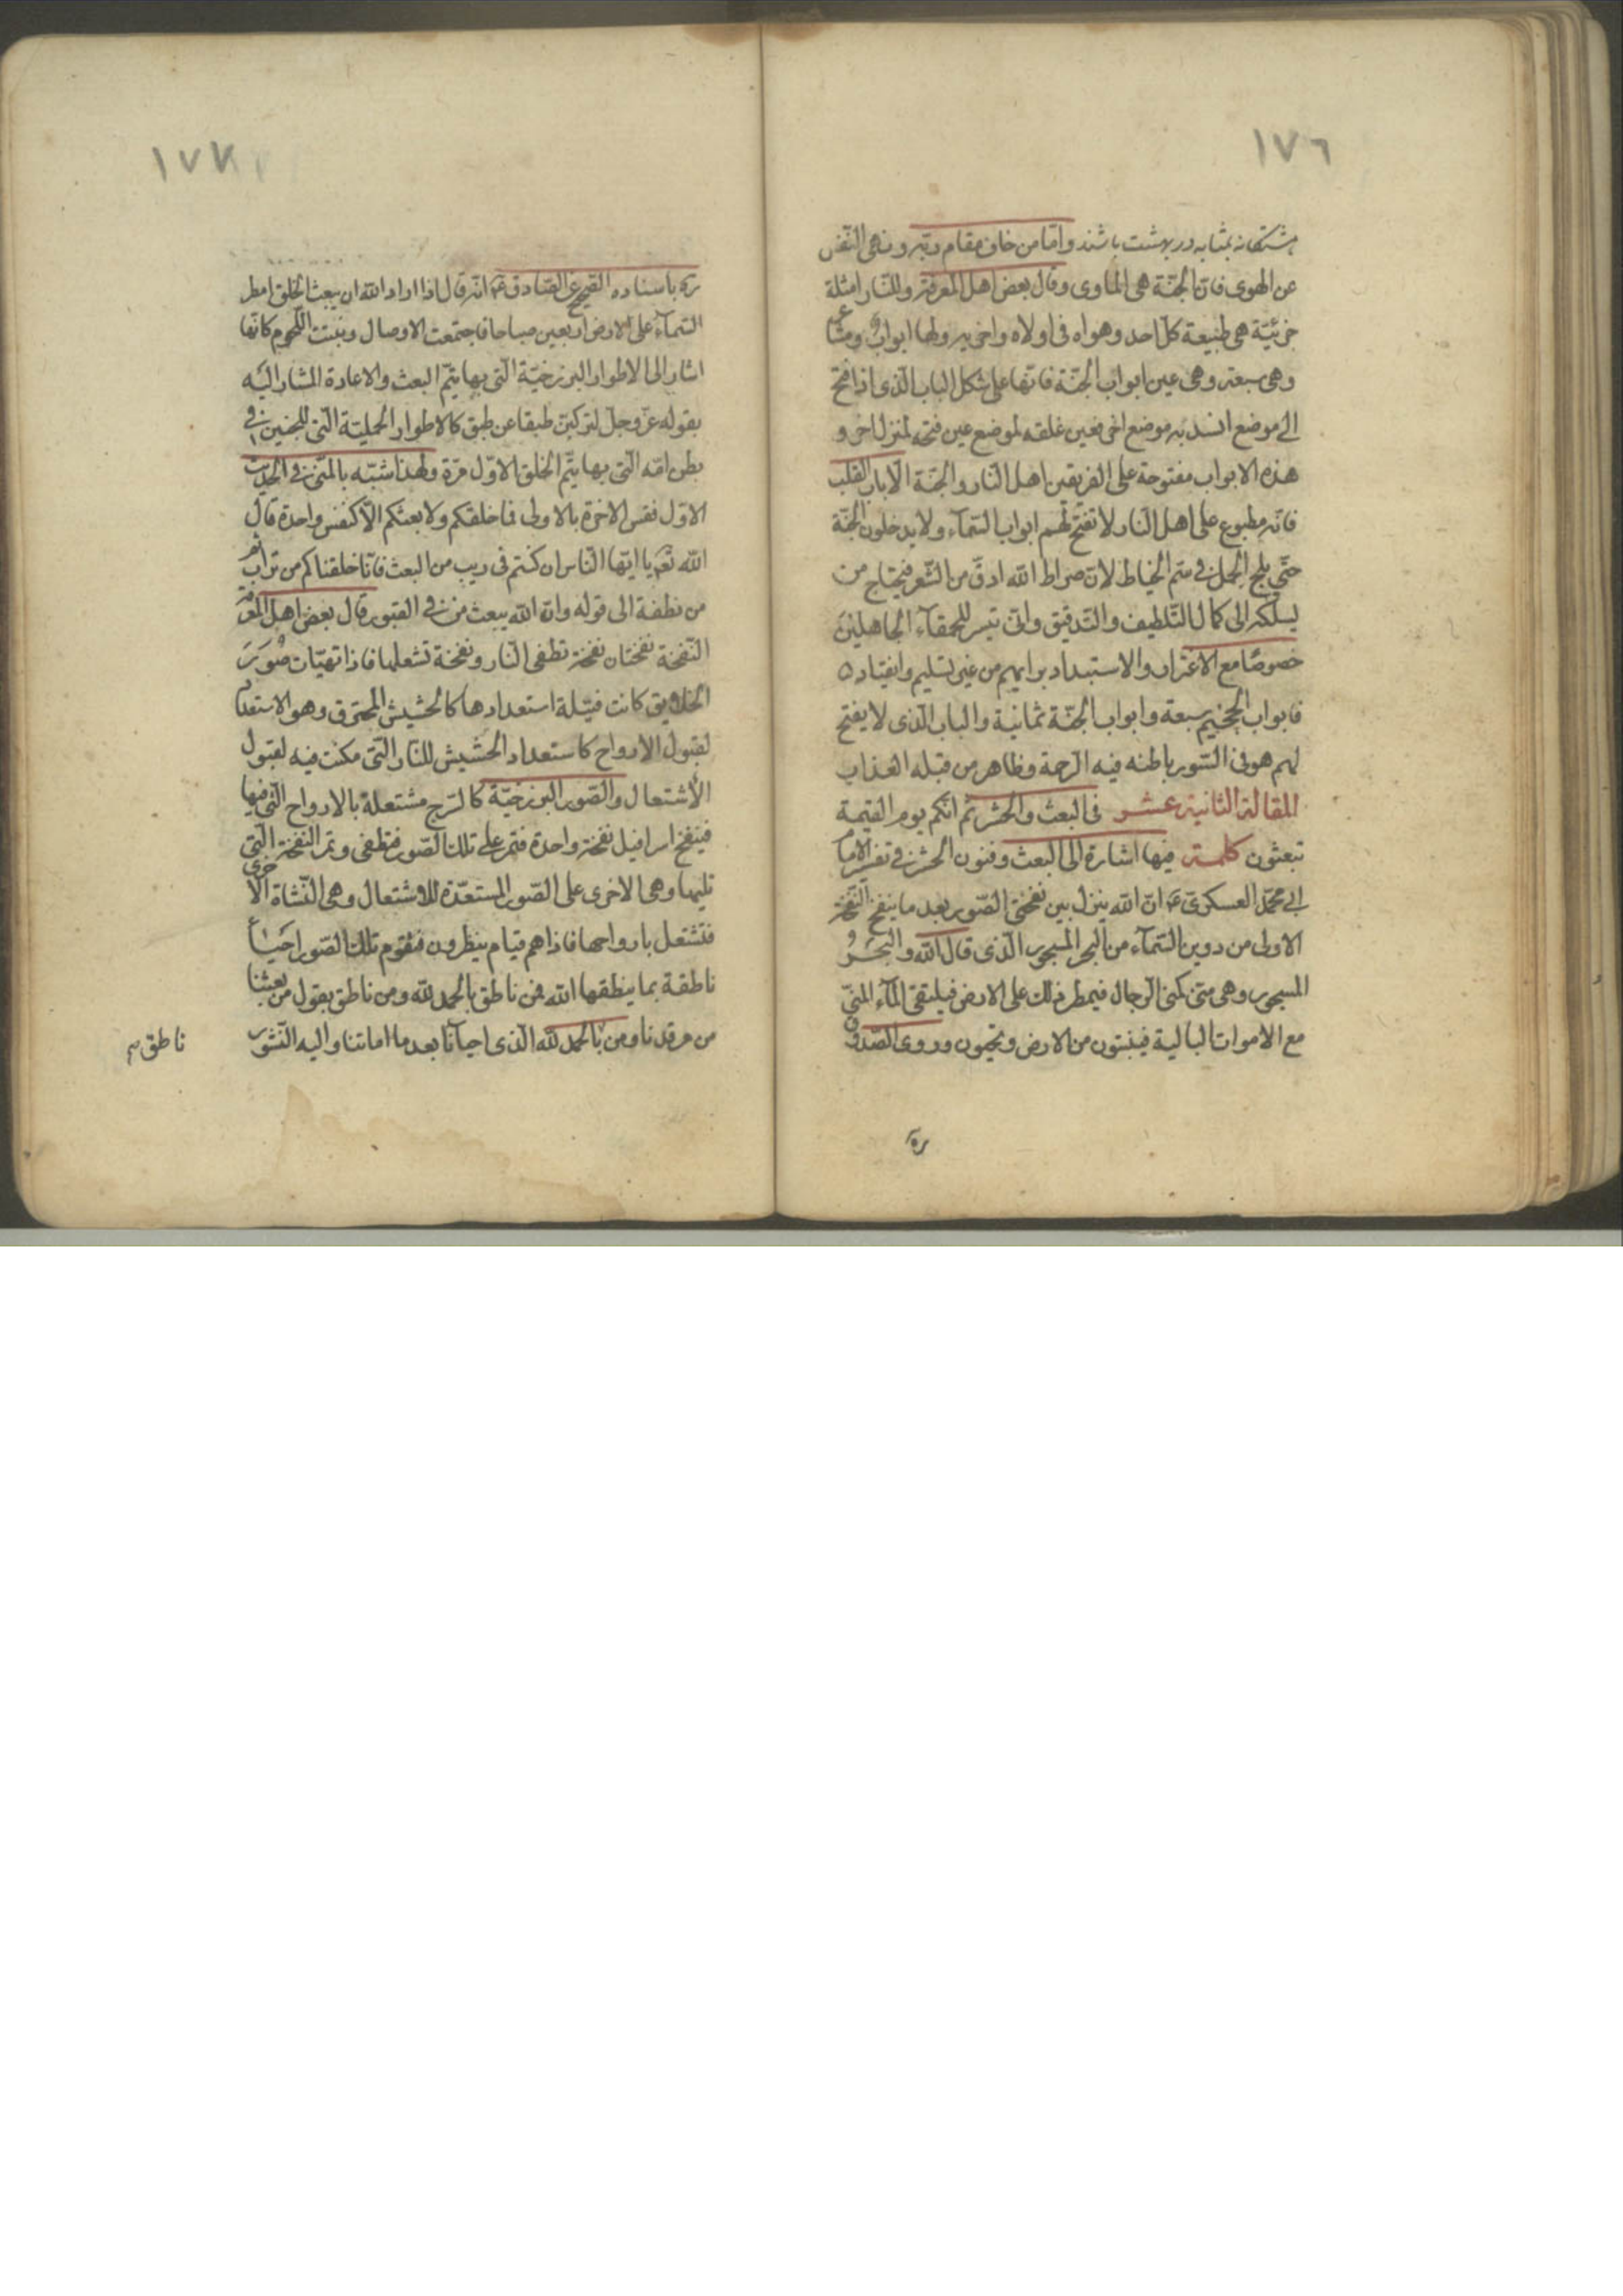 ١٧٦
هشتگانه بمثابه در بهشت باشند واما من خاف مقام ربه ونهى النفس
عن الهوى فان الجنة هى الماوى وقال بعض اهل المعرفة وللنار امثلة
جزئية هى طبيعة كل احد وهواه فى اولاه واخريه ولها ابواب ومشاعر
وهى سبعة وهى عين ابواب الجنة فانها على شكل الباب الذى اذا فتح
الى موضع انسد به موضع اخر فعين غلقه لموضع عين فتحه لمنزل اخر و
هذه الابواب مفتوحة على الفريقين اهل النار والجنة الا باب القلب
فانه مطبوع على اهل النار لا تفتح لهم ابواب السماء ولا يدخلون الجنة
حتى يلج الجمل فى سم الخياط لان صراط الله ادق من الشعر فيحتاج من
يسلكه الى كمال التلطيف والتدقيق وانى تيسر للحمقاء الجاهلين
خصوصا مع الاغترار والاستبداد برايهم من غير تسليم وانقياد ٥
فابواب الجحيم سبعة وابواب الجنة ثمانية والباب الذى لا يفتح
لهم هو فى السور باطنه فيه الرحمة وظاهره من قبله العذاب
المقالة الثانية عشر فى البعث والحشر ثم انكم يوم القيمة
تبعثون كلمة فيها اشارة الى البعث وفنون الحشر فى تفسير الامام
ابى محمد العسكرى ع ان الله ينزل بين نفختى الصور بعد ما ينفخ النفخة
الاولى من دوين السماء من البحر المسجور الذى قال الله والبحر
المسجور وهى منى كمنى الرجال فيمطر ذلك على الارض فيلتقى الماء المنى
مع الاموات البالية فينبتون من الارض ويحيون وروى الصدوق
ره
١٧٧
ره باسناده الصحيح عن الصادق ع انه قال اذا اراد الله ان يبعث الخلق امطر
السماء على الارض اربعين صباحا فاجتمعت الاوصال ونبتت اللحوم كانها
اشار الى الاطوار البرزخية التى بها يتم البعث والاعادة المشار اليه
بقوله عز وجل لتركبن طبقا عن طبق كالاطوار الحملية التى للجنين فى
بطن امه التى بها يتم الخلق الاول مرة ولهذا شبه بالمنى فى الحديث
الاول فقس الاخرة بالاولى فما خلقكم ولا بعثكم الا كنفس واحدة قال
الله تعم يا ايها الناس ان كنتم فى ريب من البعث فانا خلقناكم من تراب ثم
من نطفة الى قوله وان الله يبعث من فى القبور قال بعض اهل المعرفة
النفخة نفختان نفخة تطفى النار ونفخة تشعلها فاذا تهيات صور
الخلايق كانت فتيلة استعدادها كالحشيش المحترق وهو الاستعداد
لقبول الارواح كاستعداد الحشيش للنار التى مكنت فيه لقبول
الاشتعال والصور البرزخية كالسرج مشتعلة بالارواح التى فيها
فينفخ اسرافيل نفخة واحدة فتمر على تلك الصور فتطفى وتمر النفخة التى
تليها وهى الاخرى على الصور المستعدة للاشتعال وهى النشاة الاخرى
فتشتعل بارواحها فاذا هم قيام ينظرون فتقوم تلك الصور احياء
ناطقة بما ينطقها الله فمن ناطق بالحمد لله ومن ناطق يقول من بعثنا
من مرقدنا ومن بالحمد لله الذى احيانا بعد ما اماتنا واليه النشور
ناطق